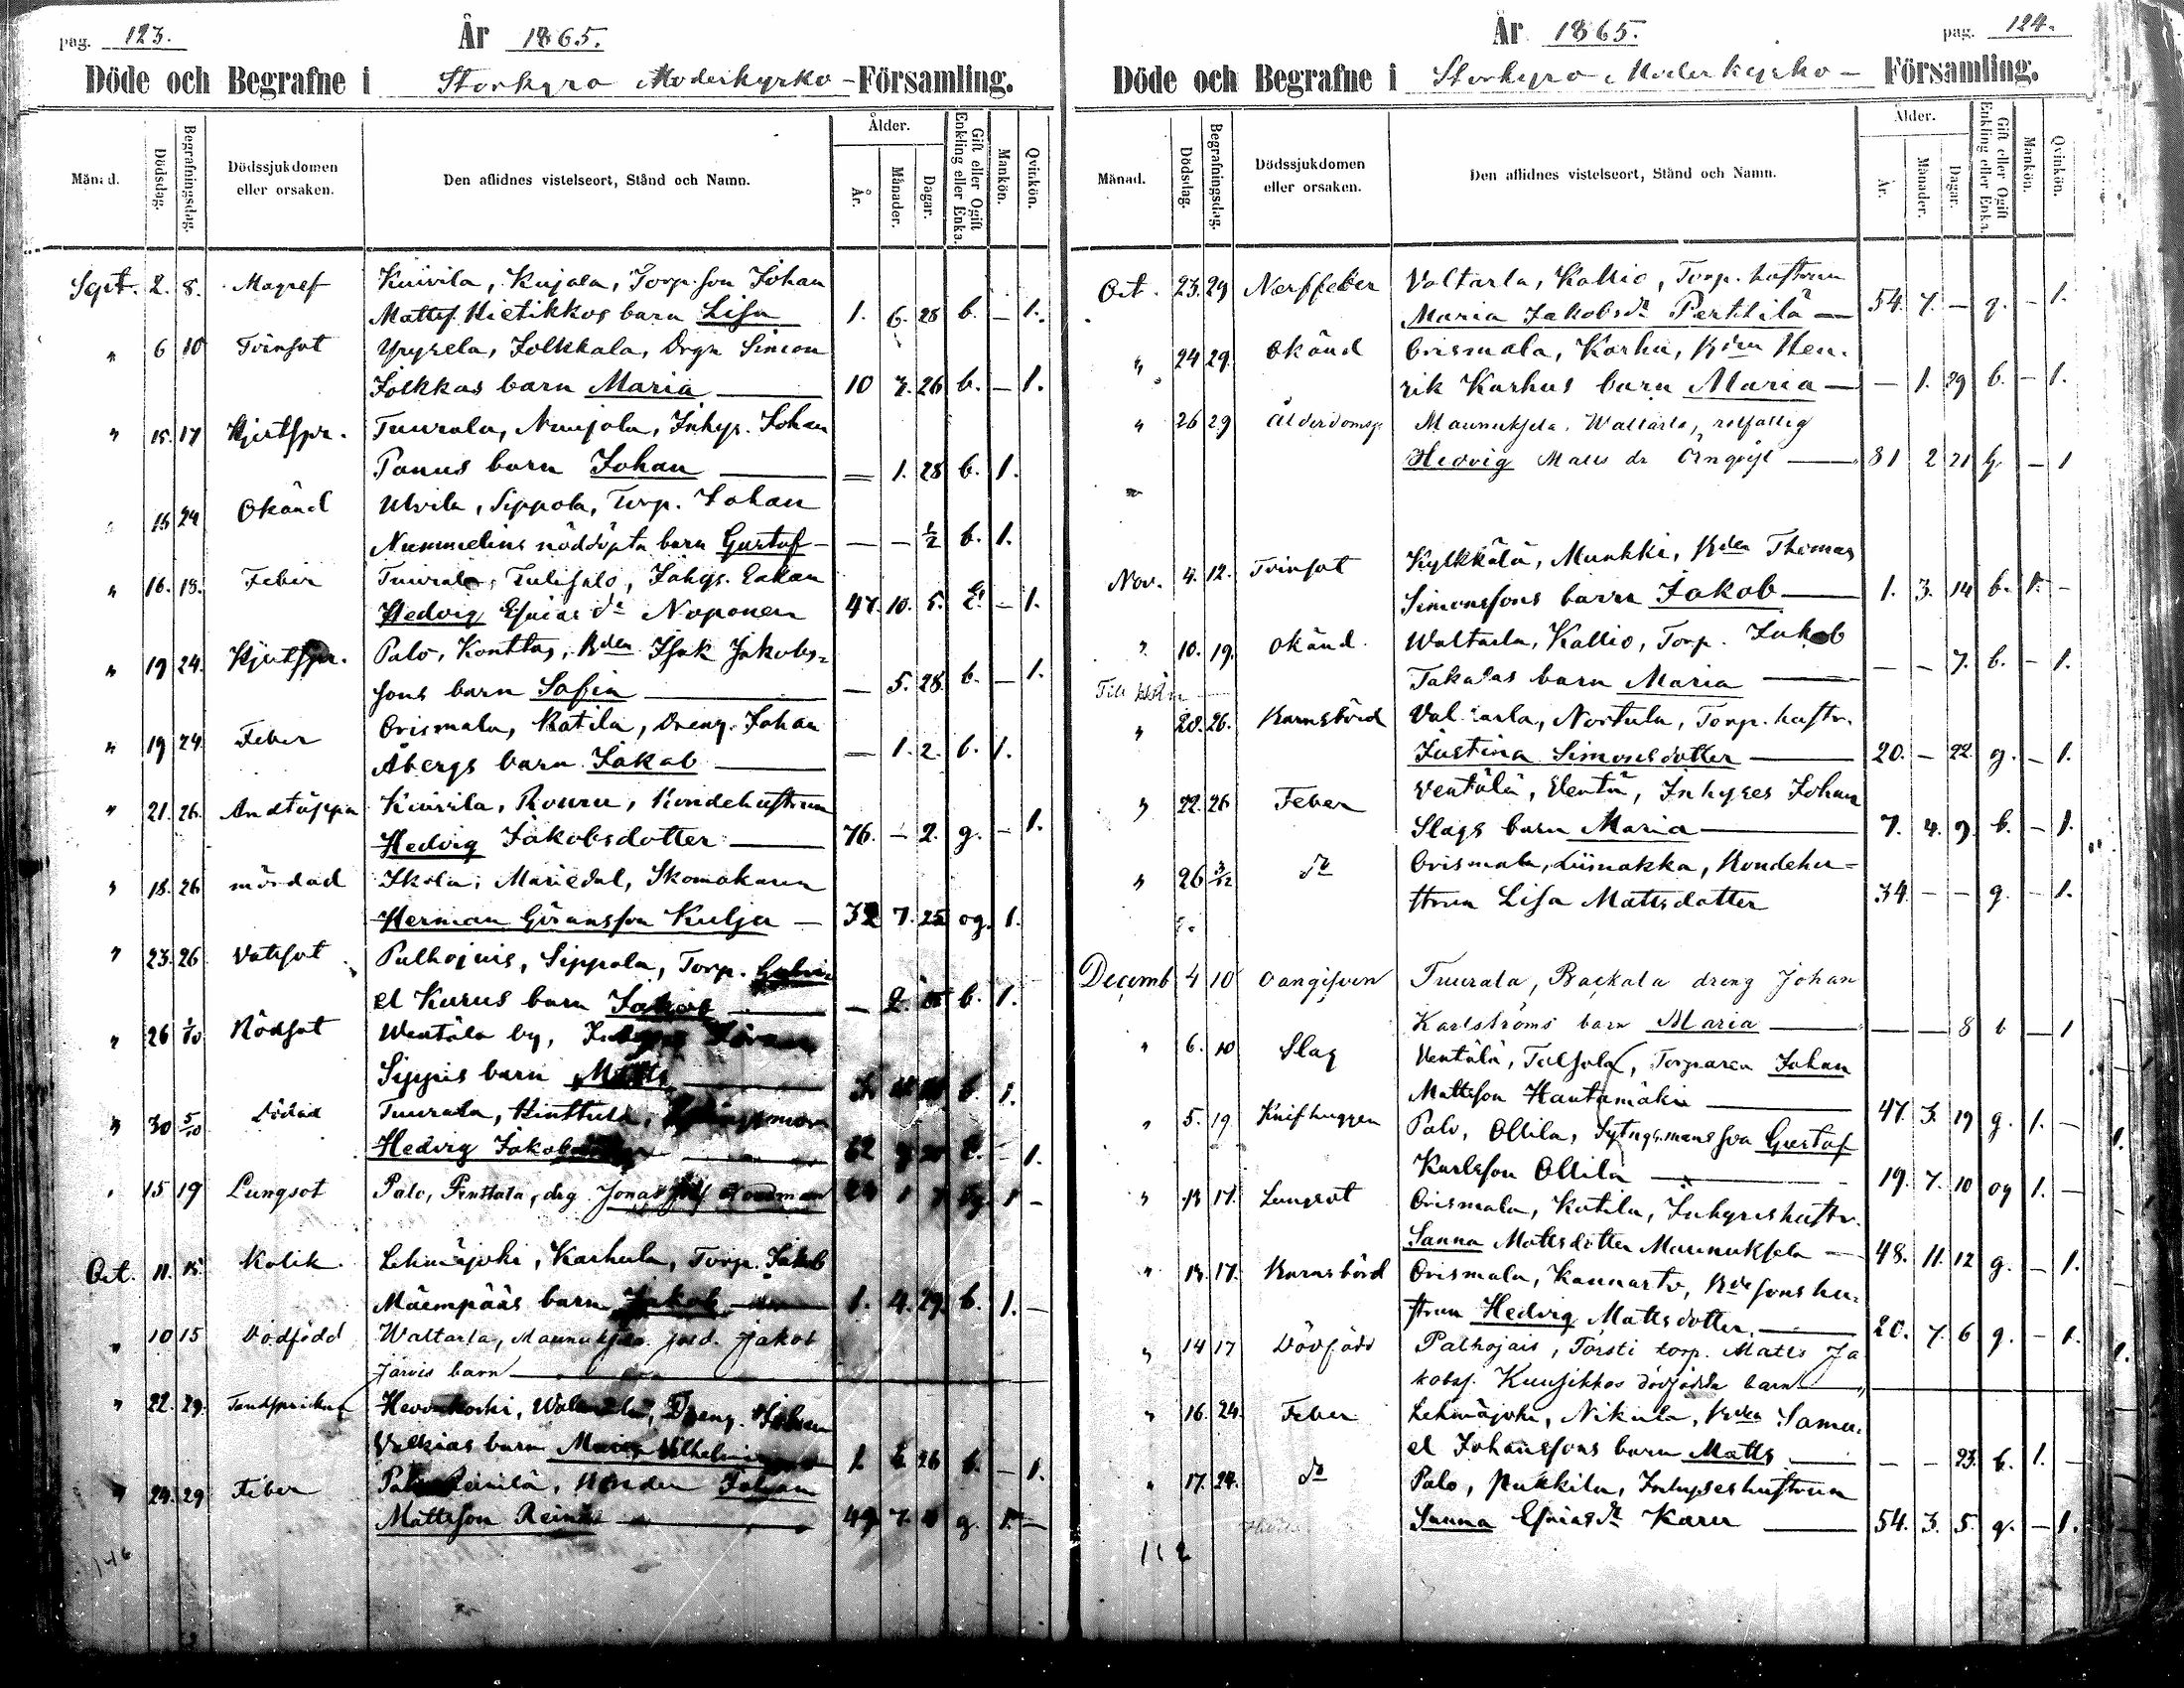 pag. 123.
År 1865.
Döde och Begrafne i Storkyro Moderkyrko-Församling.
Månad.
Dödsdag.
Begrafningsdag.
Dödssjukdomen eller orsaken.
Den aflidnes vistelseort, Stånd och Namn.
Ålder.
År.
Månader.
Dagar.
Gift eller Ogift Enkling eller Enka.
Mankön.
Qvinkön.
Sept. 2. 8. Magref Kuivila, Kujala, Torp. son Johan
Matts. Hietikkos barn Lisa 1. 6. 28 b. — 1.
" 6 10 Tvinsot Yryselä, Jolkkala, Drgn Simon
Jolkkas barn Maria 10 7. 26 b. — 1.
" 15. 17 Hjertspr. Tuurala, Nuujala, Inhys. Johan
Panus barn Johan — 1. 28 b. 1.
" 15 24 Okänd Ulvila, Sippola, Torp. Johan
Nummelins nöddöpta barn Gustaf — — 1/2 b. 1.
" 16. 18. Feber Tuurala, Tulisalo, Inhys. Enkan
Hedvig Esaias dr Noponen 47. 10. 5. E. — 1.
" 19 24. Hjertspr. Palo, Konttas, Bden Isak Jakobs-
sons barn Sofia — 5. 28. b. — 1.
" 19 24 Feber Orismala, Katila, Dreng. Johan
Åbergs barn Jakob — 1. 2. b. 1.
" 21. 26. Andtäppa Kuivila, Rouru, Bondehustrun
Hedvig Jakobsdotter 76. — 2. g. — 1.
" 18. 26 mördad Ikola, Mariedal, Skomakaren
Herman Göransson Kulja 32 7. 25 og. 1.
" 23. 26 Vattsot Palhojais, Sippola, Torp. Gabri-
el Karus barn Jakob — 2. b. 1.
" 26 1/10 Rödsot Wentälä by,
Sippis barn Matts b. 1.
" 30 5/10 Tuurala, Hinttula,
Hedvig Jakobs 62 E. — 1.
" 15 19 Lungsot Palo, Penttala, drg. Jonas 1 —
Oct. 11. 15. Kolik. Lehmäjoki, Karhula, Torp. Jakob
Mäenpääs barn Jakob 1. 4. 29. b. 1. —
" 10 15 Dödfödd Waltarla, Maunuksela Jakob
Järvis barn
" 22. 29. Dreng. Johan
barn Maria Vilhelmina 1 26 b. — 1.
" 24. 29 Feber Palo Reinilä, Bonden Johan
Mattsson Reini 49 7. g. 1. —
146
År 1865.
pag. 124.
Döde och Begrafne i Storkyro Moderkyrko- Församling.
Månad.
Dödsdag.
Begrafningsdag.
Dödssjukdomen eller orsaken.
Den aflidnes vistelseort, Stånd och Namn.
Ålder.
År.
Månader.
Dagar.
Gift eller Ogift Enkling eller Enka.
Mankön.
Qvinkön.
Oct. 23. 29 Nerffeber Valtarla, Kallio, Torp. hustrun
Maria Jakobsdr Perttilä — 54. 7. — g. — 1.
" 24 29. Okänd Orismala, Karhu, Bden Hen-
rik Karhus barn Maria — — 1. 29 b. — 1.
" 26 29 Ålderdomss. Maunuksela. Waltarla, rotfattig
Hedvig Matts dr 81 2 21 — 1
Nov. 4. 12. Tvinsot Kylkkälä, Munkki, Bden Thomas
Simonssons barn Jakob 1. 3. 14 b. 1. —
" 10. 19. Okänd. Waltarla, Kallio, Torp. Jakob
Takalas barn Maria — — 7. b. — 1.
" 20. 26. Barnsbörd Valtarla, Nortula, Torp. hustr.
Justina Simonsdotter 20. — 22. g. — 1.
" 22. 26 Feber Ventälä, Elentä, Inhyses Johan
Slags barn Maria 7. 4. 9. b. — 1.
" 26 3/12 do Orismala, Liimakka, Bondehu-
strun Lisa Mattsdotter 34. — — g. — 1.
Decemb 4 10 oangifven Tuurala, Backala dreng Johan
Karlströms barn Maria — — 8 b — 1
" 6. 10 Slag Ventälä, Torparen Johan
Mattsson Hautamäki 47 3. 19 g. 1. —
" 5. 19 Knifhuggen Palo, Ollila, Sytngsmansson Gustaf
Karlsson Ollila 19. 7. 10 og 1. —
" 13 17. Lungsot Orismala, Katila, Inhyseshustr.
Sanna Mattsdotter Maunuksela — 48. 11. 12 g. — 1.
" 13. 17. Barnsbörd Orismala, Kaunarto, Bdesons hu-
strun Hedvig Mattsdotter. 20. 7. 6 g. — 1.
" 14 17 Dödfödd Palhojais, Törsti torp. Matts Ja
kobss. Kuusikkos dödfödda barn
" 16. 24. Feber Lehmäjoki, Nikula, Bden Samu-
el Johanssons barn Matts — — 23. b. 1. —
" 17. 24. do Palo, Pukkila, Inhyseshustrun
Sanna Esaiasdr Karu 54. 3. 5. g. — 1.
112